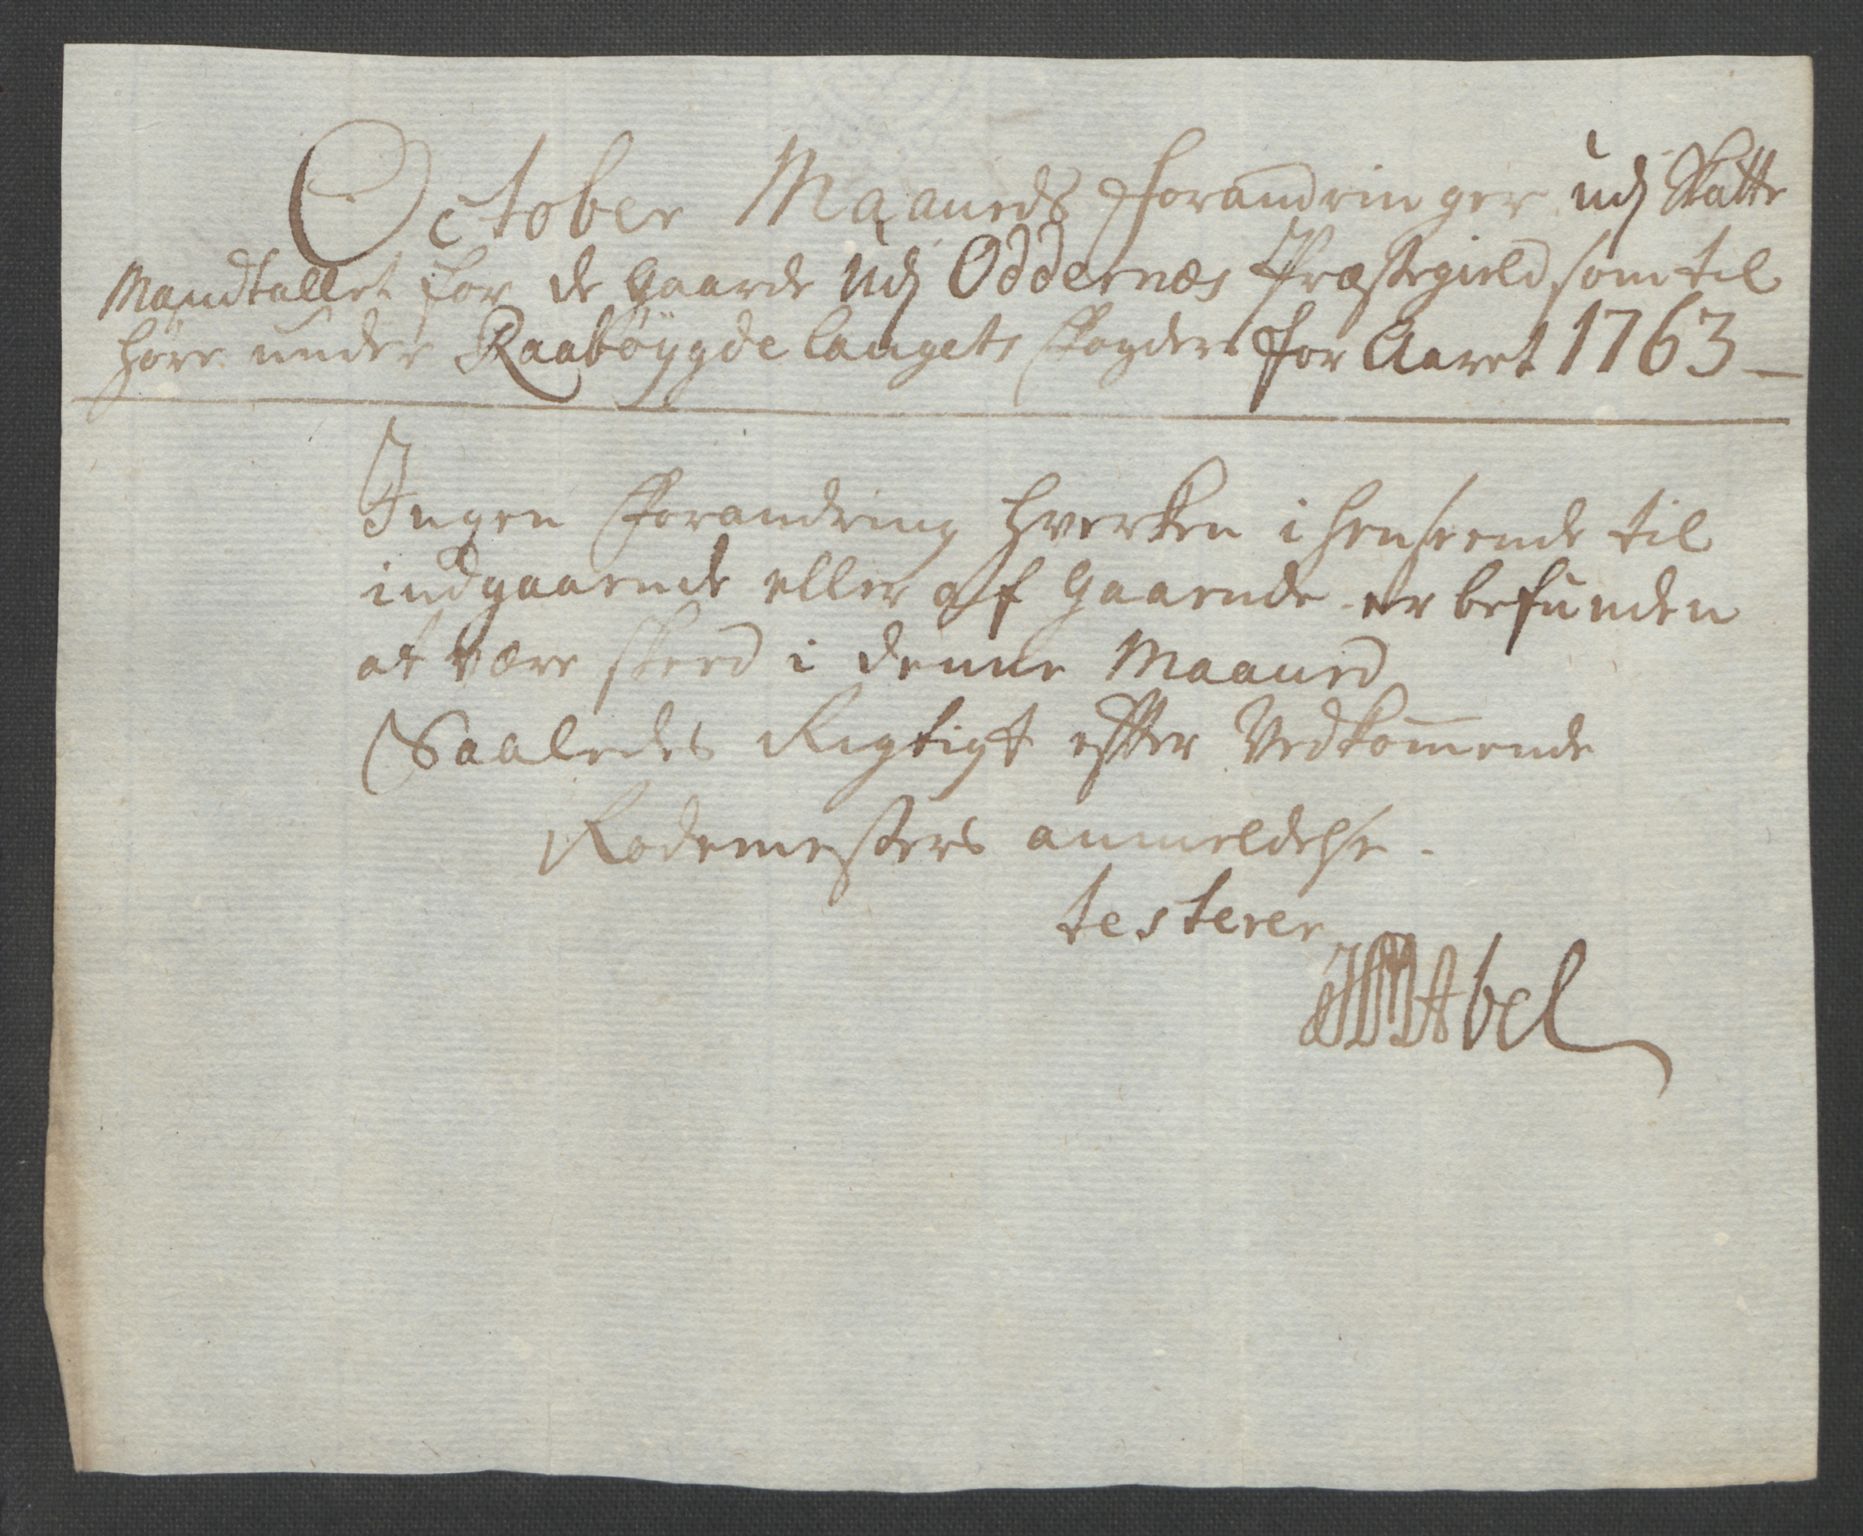 October Maaneds Forandringer udj Skatte
Mandtallet for de Gaarde Udj Oddernæs Præstegield som til
høre under Raabøygdelaugets Fogderi for Aaret 1763 —
Ingen Forandring hverken i henseende til
indgaaende eller af Gaaende er befunden
at være skeed i denne Maaned
Saaledes Rigtigt efter Vedkom̅ende
Rodemesters anmeldelse.
testerer
Abel